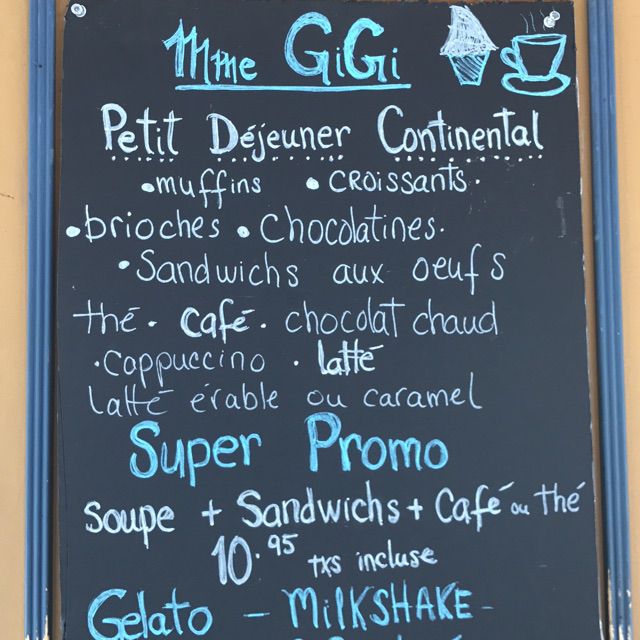 Mme GiGi
Petit Déjeuner Continental
• muffins • CROISSANTS •
• brioches • Chocolatines •
• Sandwichs aux oeufs
thé • café • chocolat chaud
• Cappuccino • latté
Latté érable ou caramel
Super Promo
Soupe + Sandwichs + Café ou thé
10.95 txs incluse
Gelato - MILKSHAKE -